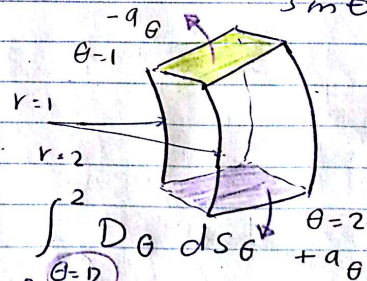 sin θ
-a_θ
θ=1
r=1
r=2
θ=2
∫ 2 D_θ dS_θ
+a_θ